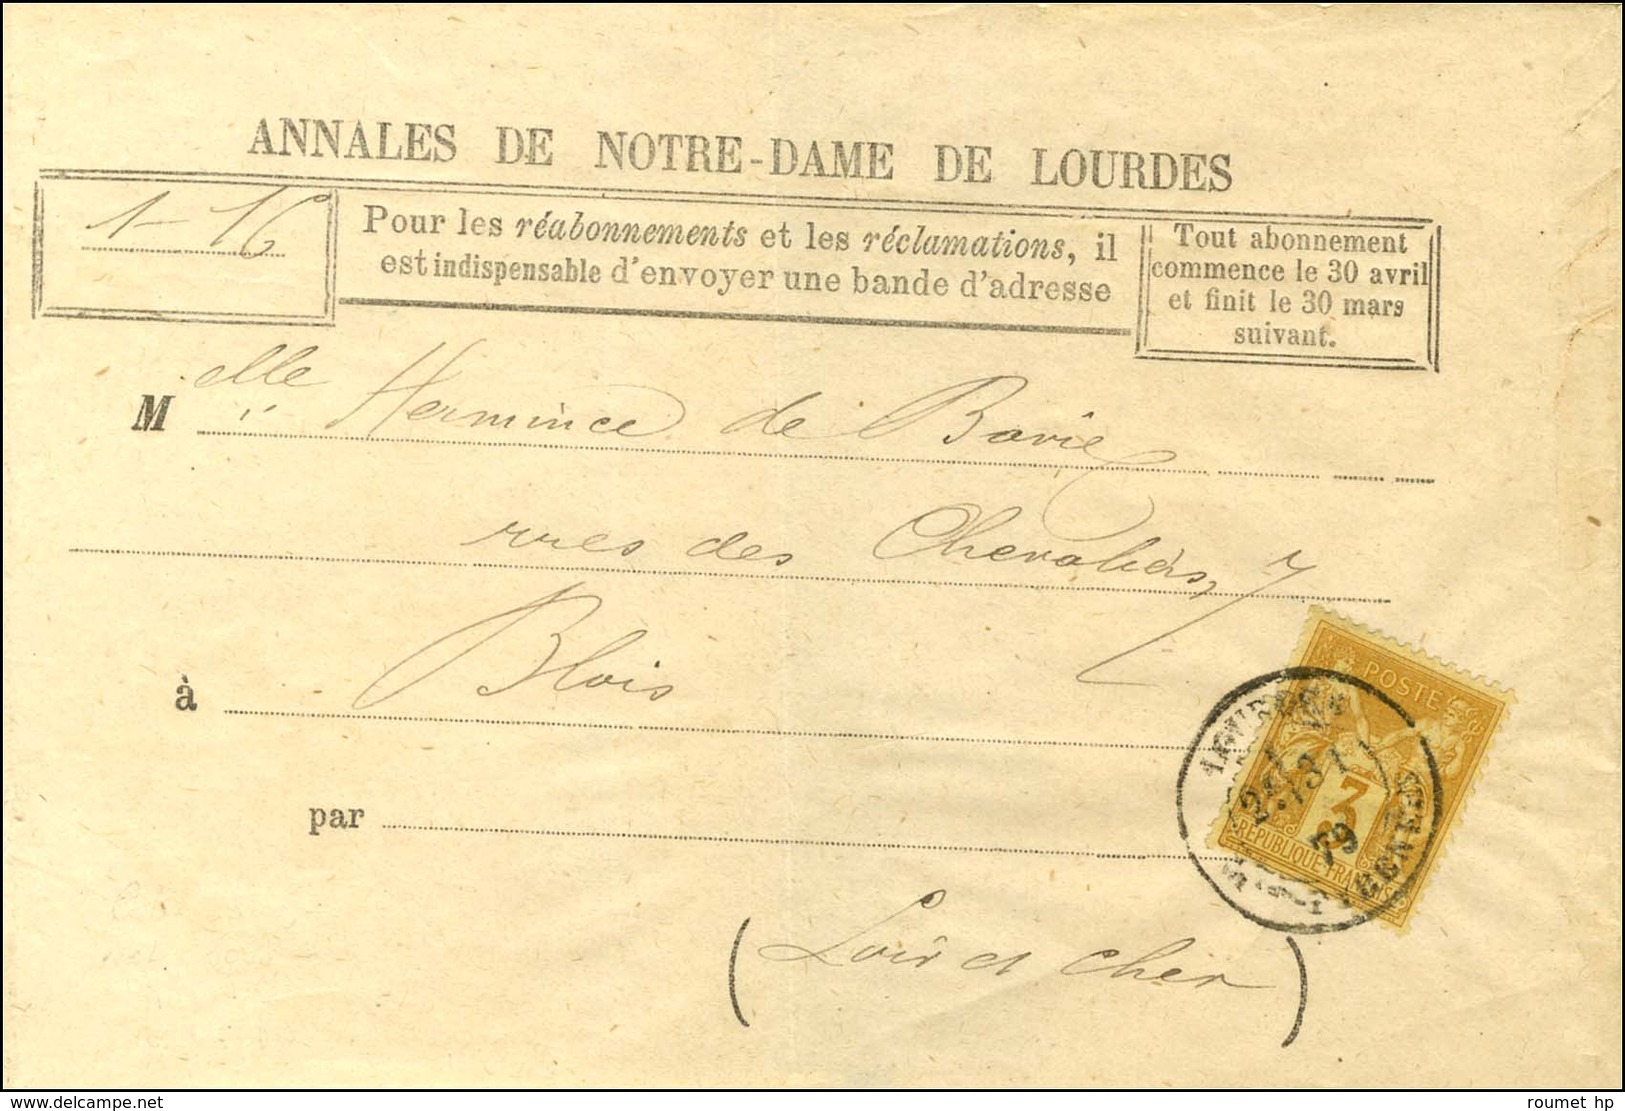 ANNALES DE NOTRE-DAME DE LOURDES
1 - 16
Pour les réabonnements et les réclamations, il
est indispensable d'envoyer une bande d'adresse
Tout abonnement
commence le 30 avril
et finit le 30 mars
suivant.
Melle Hermince de Bovie
rues des Chevaliers, 7
à Blois
par
(Loir et Cher)
POSTE
3
REPUBLIQUE FRANCAISE
LOURDES
79